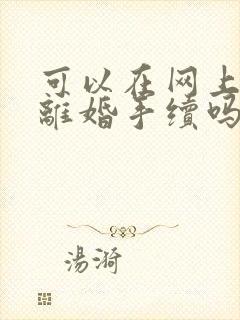 可以在网上
離婚手續吗
湯漪